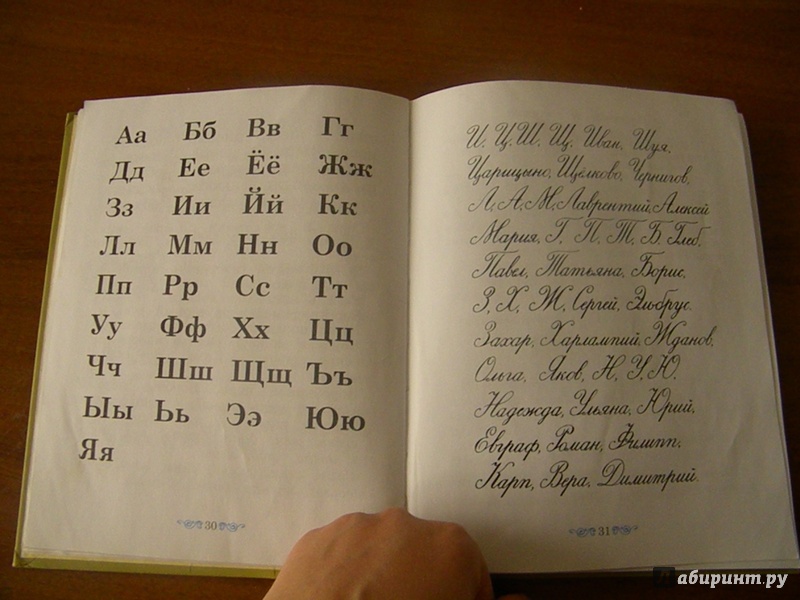 Аа Бб Вв Гг
Дд Ее Ёё Жж
Зз Ии Йй Кк
Лл Мм Нн Оо
Пп Рр Сс Тт
Уу Фф Хх Цц
Чч Шш Щщ Ъъ
Ыы Ьь Ээ Юю
Яя
30
И, Ц, Ш, Щ, Иван, Шуя,
Царицыно, Щёлково, Чернигов,
Л, А, М, Лаврентий, Алексей
Мария, Г, П, Т, Б, Глеб,
Павел, Татьяна, Борис,
З, Х, Ж, Сергей, Эльбрус.
Захар, Харлампий, Жданов,
Ольга, Яков, Н, У, Ю.
Надежда, Ульяна, Юрий,
Евграф, Роман, Филипп,
Карп, Вера, Димитрий.
31
Лабиринт.ру